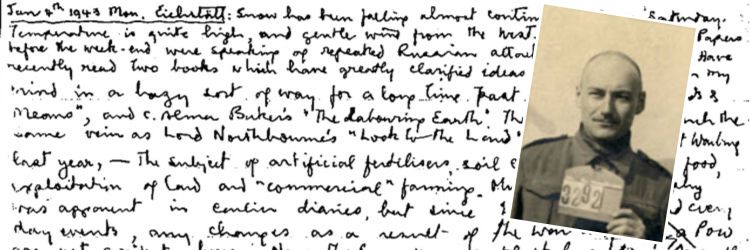 Jan 4th 1943 Mon. Eichstätt: Snow has been falling almost contin Saturday.
Temperature is quite high, and gentle wind from the West. Papers
before the week-end were speaking of repeated Russian attac Have
recently read two books which have greatly clarified ideas in my
mind in a hazy sort of way for a long time past. &
Means", and C. Alma Baker's "The Labouring Earth". Th much the
same vein as Lord Northbourne's "Look to the Land" at Warburg
last year, — The subject of artificial fertilisers, soil food,
exploitation of land and "commercial" farming.
was apparent in earlier diaries, but since I
day events, any changes as a result of the war a PoW
3292